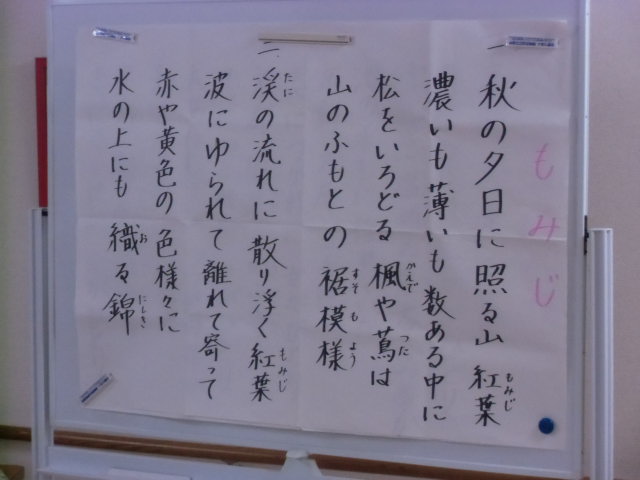 もみじ
一 秋の夕日に照る山紅葉
もみじ
濃いも薄いも数ある中に
松をいろどる楓や蔦は
かえで
つた
山のふもとの裾模様
すそもよう
二、渓の流れに散り浮く紅葉
たに
もみじ
波にゆられて離れて寄って
赤や黄色の色様々に
水の上にも織る錦
お
にしき